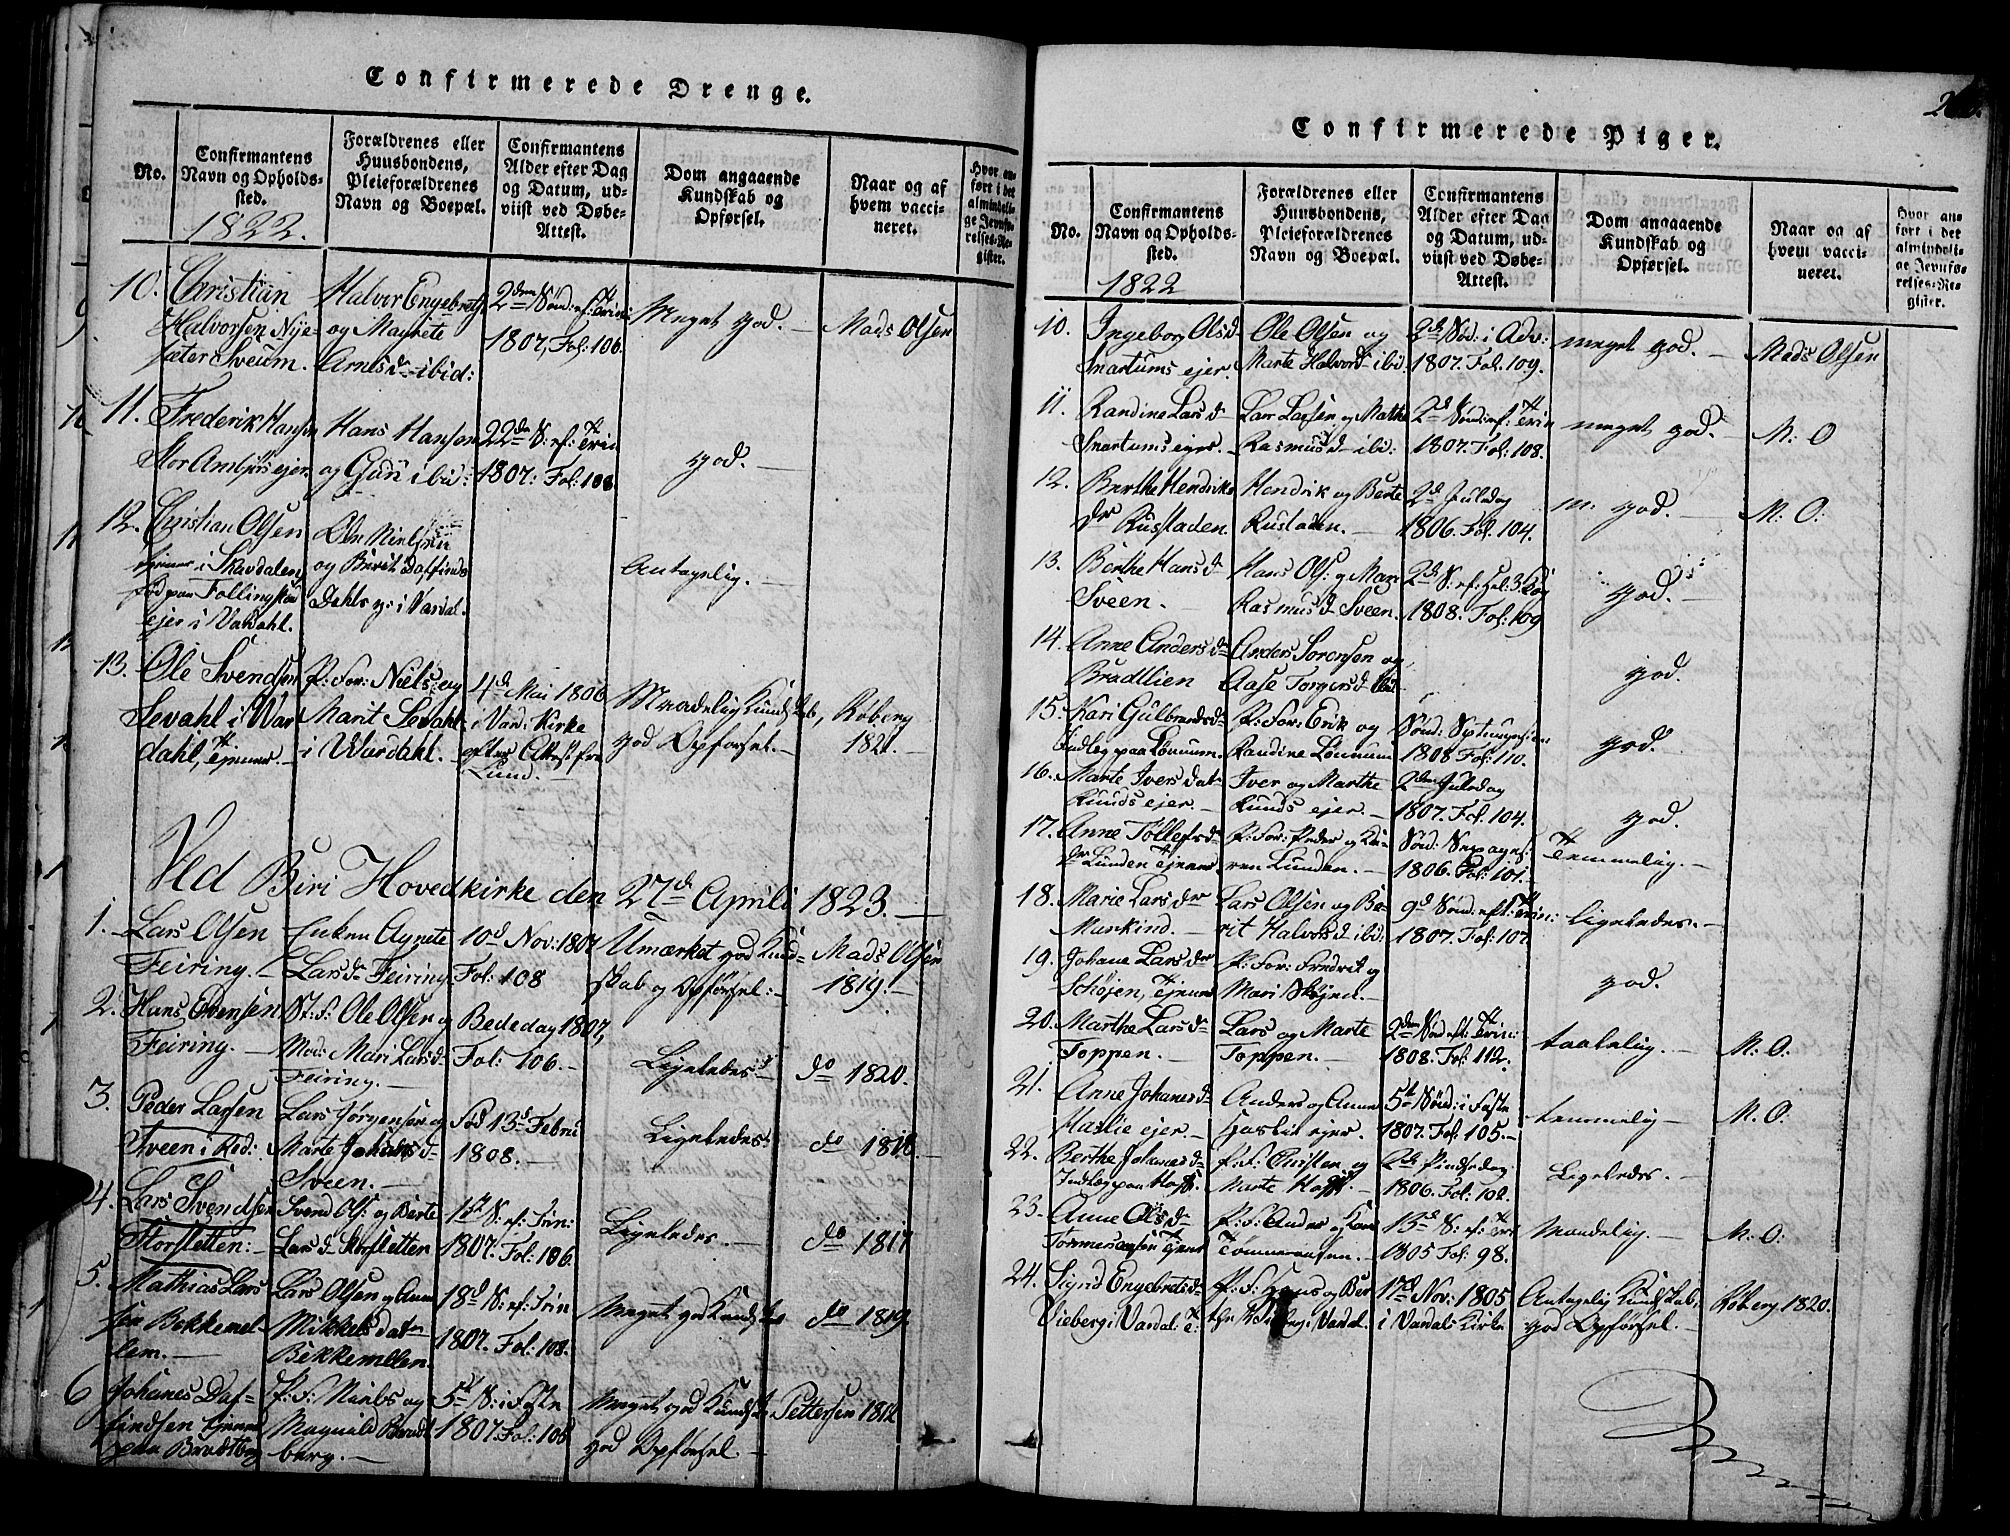 Confirmerede Drenge.
No.
Confirmantens
Navn og Opholds-
sted.
1822.
Forældrenes eller
Huusbondens,
Pleieforældrenes
Navn og Boepæl.
Confirmantens
Alder efter Dag
og Datum, ud-
viist ved Døbe-
Attest.
Dom angaaende
Kundskab og
Opførsel.
Naar og af
hvem vacci-
neret.
Hvor an-
ført i det
almindeli-
ge Jevnfø-
relses-Re-
gister.
10. Christian
Halvorsen Nye-
sæter Sveum.
Halvor Engebrets.
og Magnete
Arnesd. ibid:
2den Sønd: ef: Trin:
1807, Fol: 106.
Meget god.
Mads Olsen
11. Frederik Hansen
Hans Hansen
og Guri ibid:
22de S: ef: Trin
1807: Fol: 108
god.
12. Christian Olsen
tjener i Skavdalen
ejer i Vardahl.
Ole Nielsen
og Berit Daffinds
i Vardal.
Antagelig.
13. Ole Svendsen
Sevahl i War
dahl, Tjener.
P: For: Niels og
Marit Sevahl
i Wardahl.
4de Mai 1806
i Vard: Kirke
efter Attest fra
Lund.
Maadelig Kundskab,
god Opførsel.
Røberg
182 .
Ved Biri Hovedkirke den 27de Aprili 1823.
1. Lars Olsen
Feiring.
Enken Agnete
Larsd. Feiring
10d Nov: 1807
Fol: 108
Umærket god Kund-
skab og Opførsel:
Mads Olsen
1819.
2. Hans Evensen
Feiring.
St: f: Ole Olsen og
Mod: Mari Larsd
Feiring.
Bededag 1807,
Fol: 106.
Ligeledes
do 1820.
3. Peder Larsen
Sveen i Red:
Lars Jørgensen og
Marte Johansd
Sveen.
Fød 13d Febru
1808.
Ligeledes
do 1818.
4. Lars Svendsen
Storsletten:
Svend Ols: og Berte
Lars d. Storsletten
1st S: ef: Trin:
1807. Fol: 106.
Ligeledes.
do 1817
5. Mathias Lars
sen Bekkemel-
lem.
Lars Olsen og Anne
Mikkelsdat
Bekkemellem
18d S: ef: Trin
1807. Fol: 108.
Meget god Kundskab
do 1819
6 Johanes Daf-
findsen tjener
paa Bradtberg
P: F: Niels og
Magnild Bradt
berg.
5t S: i Faste
1807. Fol: 105
Meget god Kundsk.
god Opførsel.
Pettersen 1812
Confirmerede Piger.
No.
Confirmantens
Navn og Opholds-
sted.
1822
Forældrenes eller
Huusbondens,
Pleieforældrenes
Navn og Boepæl.
Confirmantens
Alder efter Dag
og Datum, ud-
viist ved Døbe-
Attest.
Dom angaaende
Kundskab og
Opførsel.
Naar og af
hvem vacci-
neret.
Hvor an-
ført i det
almindeli-
ge Jevnfø-
relses-Re-
gister.
10. Ingeborg Olsd
Snartums ejer.
Ole Olsen og
Marte Halvord ibid.
2de Sød: i Adv:
1807. Fol. 109.
meget god.
Mads Olsen
11. Randine Lars d
Snartums ejer.
Lars Larsen og Mathe
Rasmusd ibid:
2d Sønd: ef: Trin
1807. Fol: 108.
meget god.
M: O
12. Berthe Hendriks
dr Rustaden.
Hendrik og Berte
Rustaden.
2d Juledag
1806. Fol: 104.
m. god.
M: O:
13. Berthe Hans d
Sveen.
Hans Ols: og Mari
Rasmus d Sveen.
2de S: ef: Hel: 3 Kong
1808. Fol: 109
god.
14. Anne Anders d
Bradtlien
Anders Sorensen og
Aase Torgersd ibid
god.
15. Kari Gulbrandsd
Indleg paa Lønnum.
P: For: Erik og
Randine Lønnum
Sønd: Septuagesima
1808 Fol: 110.
god.
16. Marte Ivers dat
Lunds ejer.
Iver og Marthe
Lunds ejer.
2den Juledag
1807. Fol. 104.
god.
17. Anne Tollefsd
Lunden Tjener
P: For: Peder og Ka-
ren Lunden.
Sønd: Sexages:
1806. Fol: 101.
Temmelig.
18. Marie Larsdr
Munkind.
Lars Olsen og Be-
rit Halvorsd ibid.
9d Sønd: eft: Trin:
1807. Fol: 107.
Ligeledes.
19. Johane Larsdr
Schøjen, Tjener
P: For: Fredrik og
Mari Skøjen.
god.
20. Marthe Larsd
Toppen.
Lars og Marte
Toppen.
2den Sønd: ef: Trin:
1808. Fol: 112.
taalelig.
M: O:
21. Anne Johanesd
Haslie ejer.
Anders og Anne
Haslie ejer.
5t Sønd: i Faste
1807. Fol: 105.
temmelig
M. O.
22. Berthe Johanesd
Indleg paa Hoff.
P: F: Christen og
Marte Hoff.
2de Pindsedag
1806. Fol: 102.
Ligeledes.
23. Anne Ols d
Tømmeraasen Tjener
P: F: Anders og Kari
Tømmeraasen.
13d S: ef: Tri
1805 Fol: 98.
Maadelig.
M: O:
24. Sigrid Engebretsd
Vieberg i Vardal. T:
P: F: Hans og Ber
the Vieberg i Vardal.
17d Nov: 1805
i Vardals Kirke
Antagelig Kundskab,
god Opførsel.
Røberg 1820.